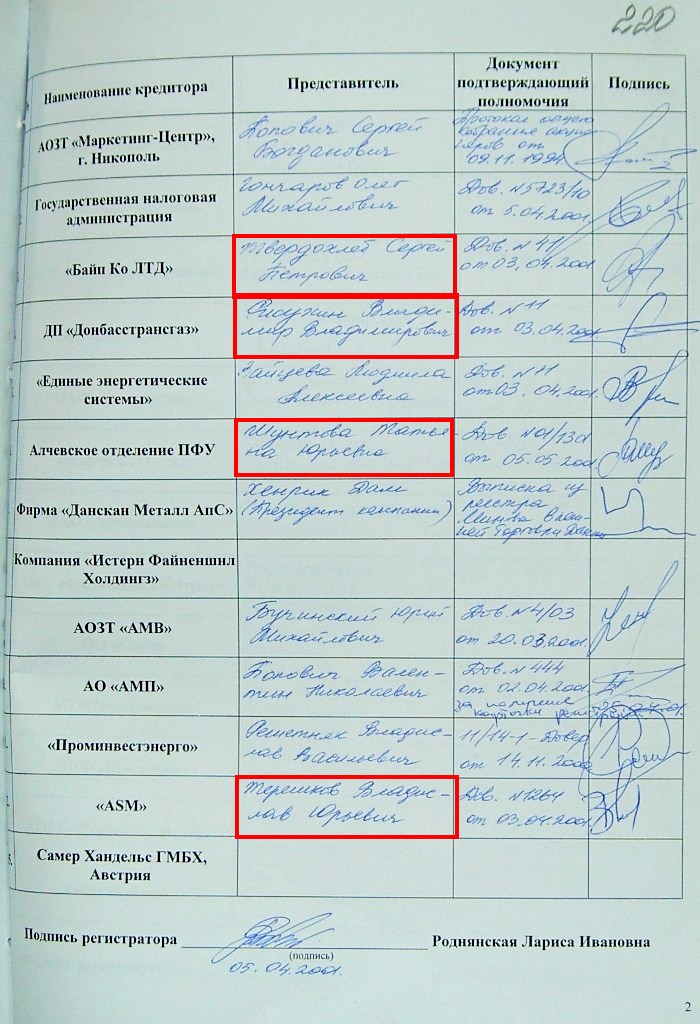 220
Наименование кредитора
Представитель
Документ
подтверждающий
полномочия
Подпись
АОЗТ «Маркетинг-Центр»,
г. Никополь
Попович Сергей
Богданович
Протокол общего
собрания акцио-
неров от
09.11.1994
Государственная налоговая
администрация
Гончаров Олег
Михайлович
Дов. №5723/10
от 5.04.2001
«Байп Ко ЛТД»
Твердохлеб Сергей
Петрович
Дов. №41
от 03.04.2001
ДП «Донбасстрансгаз»
Влади-
мир Владимирович
Дов. №11
от 03.04.2001
«Единые энергетические
системы»
Зайцева Людмила
Алексеевна
Дов. №11
от 03.04.2001
Алчевское отделение ПФУ
Шунтова Татья-
на Юрьевна
Дов. №01/1301
от 05.05.2001
Фирма «Данскан Металл АпС»
Хенрик Дам
(Президент компании)
Выписка из
реестра
Торговли Дании
Компания «Истерн Файненшнл
Холдингз»
АОЗТ «АМВ»
Бучинский Юрий
Михайлович
Дов. №4/03
от 20.03.2001
АО «АМП»
Попович Вален-
тин Николаевич
Дов. №444
от 02.04.2001
за получение
карточки
«Проминвестэнерго»
Решетняк Владис-
лав Васильевич
11/14-1- Довер
от 14.11.2000
2.
«ASM»
Терешков Владис-
лав Юрьевич
Дов. №1264
от 03.04.2001
Самер Хандельс ГМБХ,
Австрия
Подпись регистратора
Роднянская Лариса Ивановна
(подпись)
05.04.2001
2